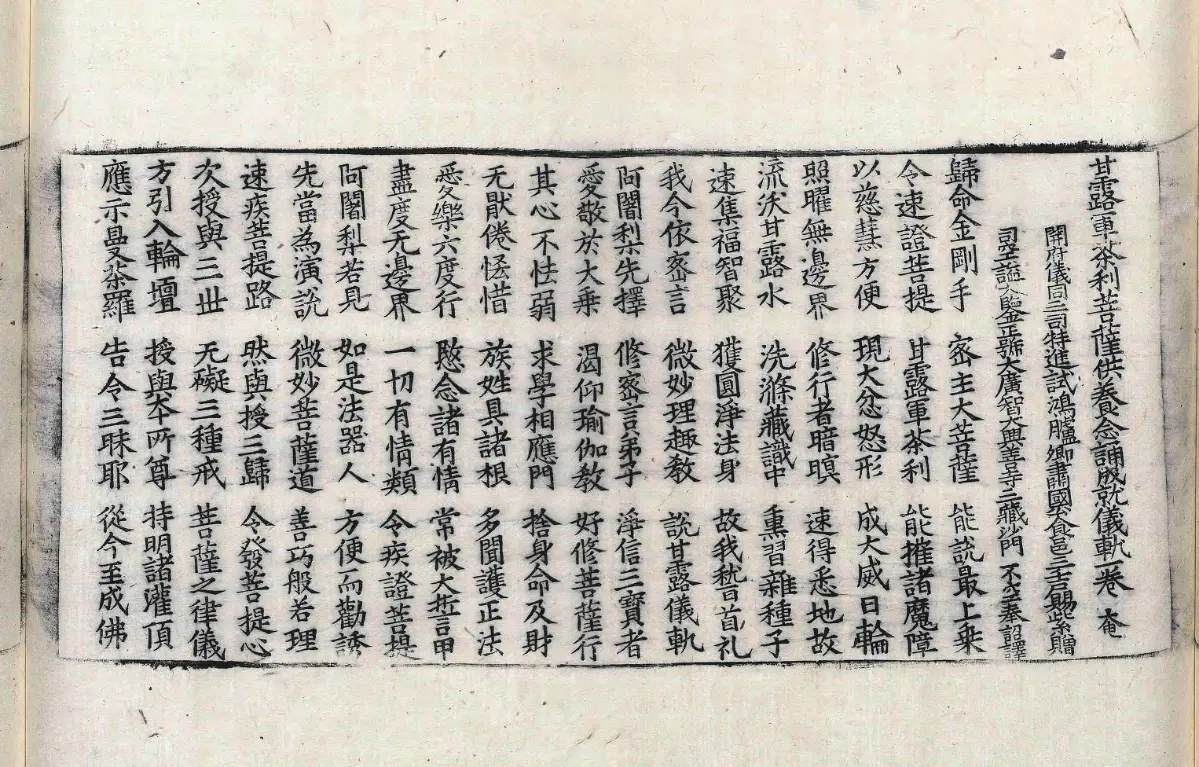 甘露軍荼利菩薩供養念誦成就儀軌一卷 奄
開府儀同三司特進試鴻臚卿肅國公食邑三千戶賜紫贈
司空謚大鑒正號大廣智大興善寺三藏沙門 不空奉 詔譯
歸命金剛手 密主大菩薩 能說最上乗
令速證菩提 甘露軍荼利 能摧諸魔障
以慈慧方便 現大忿怒形 成大威日輪
照曜無邊界 修行者暗暝 速得悉地故
流沃甘露水 洗滌藏識中 熏習雜種子
速集福智聚 獲圓淨法身 故我稽首礼
我今依密言 微妙理趣教 說甘露儀軌
阿闍梨先擇 修密言弟子 淨信三寶者
愛敬於大乗 渴仰瑜伽教 好修菩薩行
其心不怯弱 求學相應門 捨身命及財
无猒倦悋惜 族姓具諸根 多聞護正法
愛樂六度行 愍念諸有情 常被大誓甲
盡度无邊界 一切有情類 令疾證菩提
阿闍梨若見 如是法器人 方便而勸誘
先當為演說 微妙菩薩道 善巧般若理
速疾菩提路 然與授三歸 令發菩提心
次授與三世 无礙三種戒 菩薩之律儀
方引入輪壇 授與本所尊 持明諸灌頂
應示曼荼羅 告令三昧耶 從今至成佛